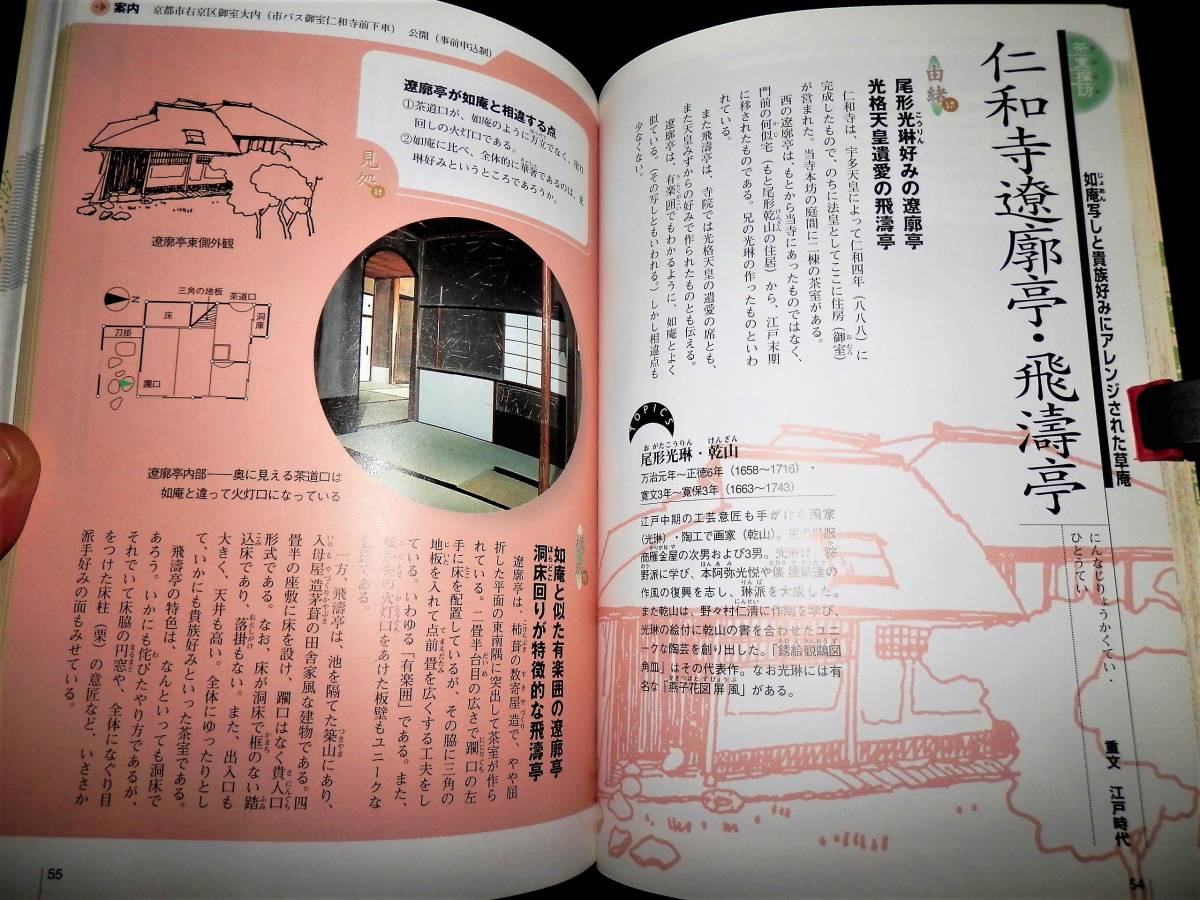 茶室探訪
如庵写しと貴族好みにアレンジされた草庵
仁和寺遼廓亭・飛濤亭
にんなじりょうかくてい・
ひとうてい
重文 江戸時代
由緒
尾形光琳好みの遼廓亭
光格天皇遺愛の飛濤亭
仁和寺は、宇多天皇によって仁和四年（八八八）に
完成したもので、のちに法皇としてここに住房（御室）
が営まれた。当寺本坊の庭間に二棟の茶室がある。
西の遼廓亭は、もとから当寺にあったものではなく、
門前の何似宅（もと尾形乾山の住居）から、江戸末期
に移されたものである。兄の光琳の作ったものといわ
れている。
また飛濤亭は、寺院では光格天皇の遺愛の席とも、
また天皇みずからの好みで作られたものとも伝える。
遼廓亭は、有楽囲でもわかるように、如庵とよく
似ている。（その写しともいわれる。）しかし相違点も
少なくない。
TOPICS
尾形光琳・乾山
万治元年〜正徳6年（1658〜1716）・
寛文3年〜寛保3年（1663〜1743）
江戸中期の工芸意匠も手がけた画家
（光琳）・陶工で画家（乾山）。
商雁金屋の次男および3男。
野派に学び、本阿弥光悦や俵
作風の復興を志し、琳派を大成した。
また乾山は、野々村仁清に作陶を学び、
光琳の絵付に乾山の書を合わせたユニ
ークな陶芸を創り出した。「銹絵観鷗図
角皿」はその代表作。なお光琳には有
名な「燕子花図屏風」がある。
54
案内 京都市右京区御室大内（市バス御室仁和寺前下車） 公開（事前申込制）
見処
遼廓亭が如庵と相違する点
①茶道口が、如庵のように方立でなく、塗り
回しの火灯口である。
②如庵に比べ、全体的に華奢であるのは、光
琳好みというところであろうか。
遼廓亭東側外観
三角の地板
茶道口
床
洞庫
刀掛
躙口
遼廓亭内部――奥に見える茶道口は
如庵と違って火灯口になっている
如庵と似た有楽囲の遼廓亭
洞床回りが特徴的な飛濤亭
遼廓亭は、杮葺の数寄屋造で、やや屈
折した平面の東南隅に突出して茶室が作ら
れている。二畳半台目の広さで躙口の左
手に床を配置しているが、その脇に三角の
地板を入れて点前畳を広くする工夫をし
ている。いわゆる「有楽囲」である。また、
の火灯口をあけた板壁もユニークな
一方、飛濤亭は、池を隔てた築山にあり、
入母屋造茅葺の田舎家風な建物である。四
畳半の座敷に床を設け、躙口はなく貴人口
形式である。なお、床が洞床で框のない踏
込床であり、落掛もない。また、出入口も
大きく、天井も高い。全体にゆったりとし
て、いかにも貴族好みといった茶室である。
飛濤亭の特色は、なんといっても洞床で
あろう。いかにも侘びたやり方であるが、
それでいて床脇の円窓や、全体になぐり目
をつけた床柱（栗）の意匠など、いささか
派手好みの面もみせている。
55